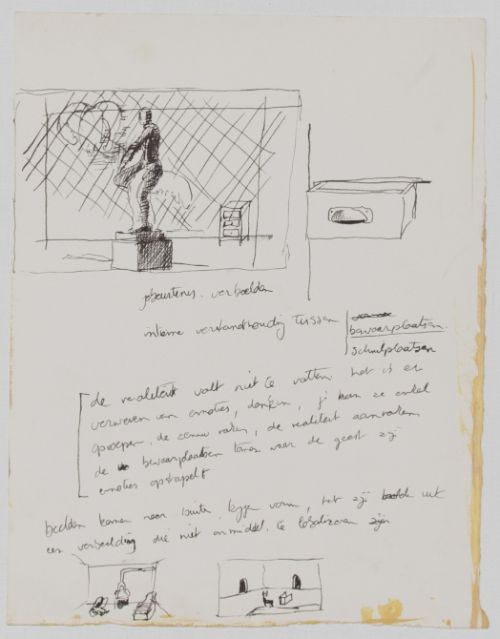 gebeurtenis. verbeelden
interne verstandhouding tussen
bewaarplaatsen
schuilplaatsen
de realiteit valt niet te vatten het is een
verweven van emoties, denken, je kan ze enkel
oproepen. de realiteit aanraken
de bewaarplaatsen tonen waar de geest zijn
emoties opstapelt
beelden komen naar buiten krijgen vorm, het zijn uit
een verbeelding die niet onmiddel. te lokaliseren zijn